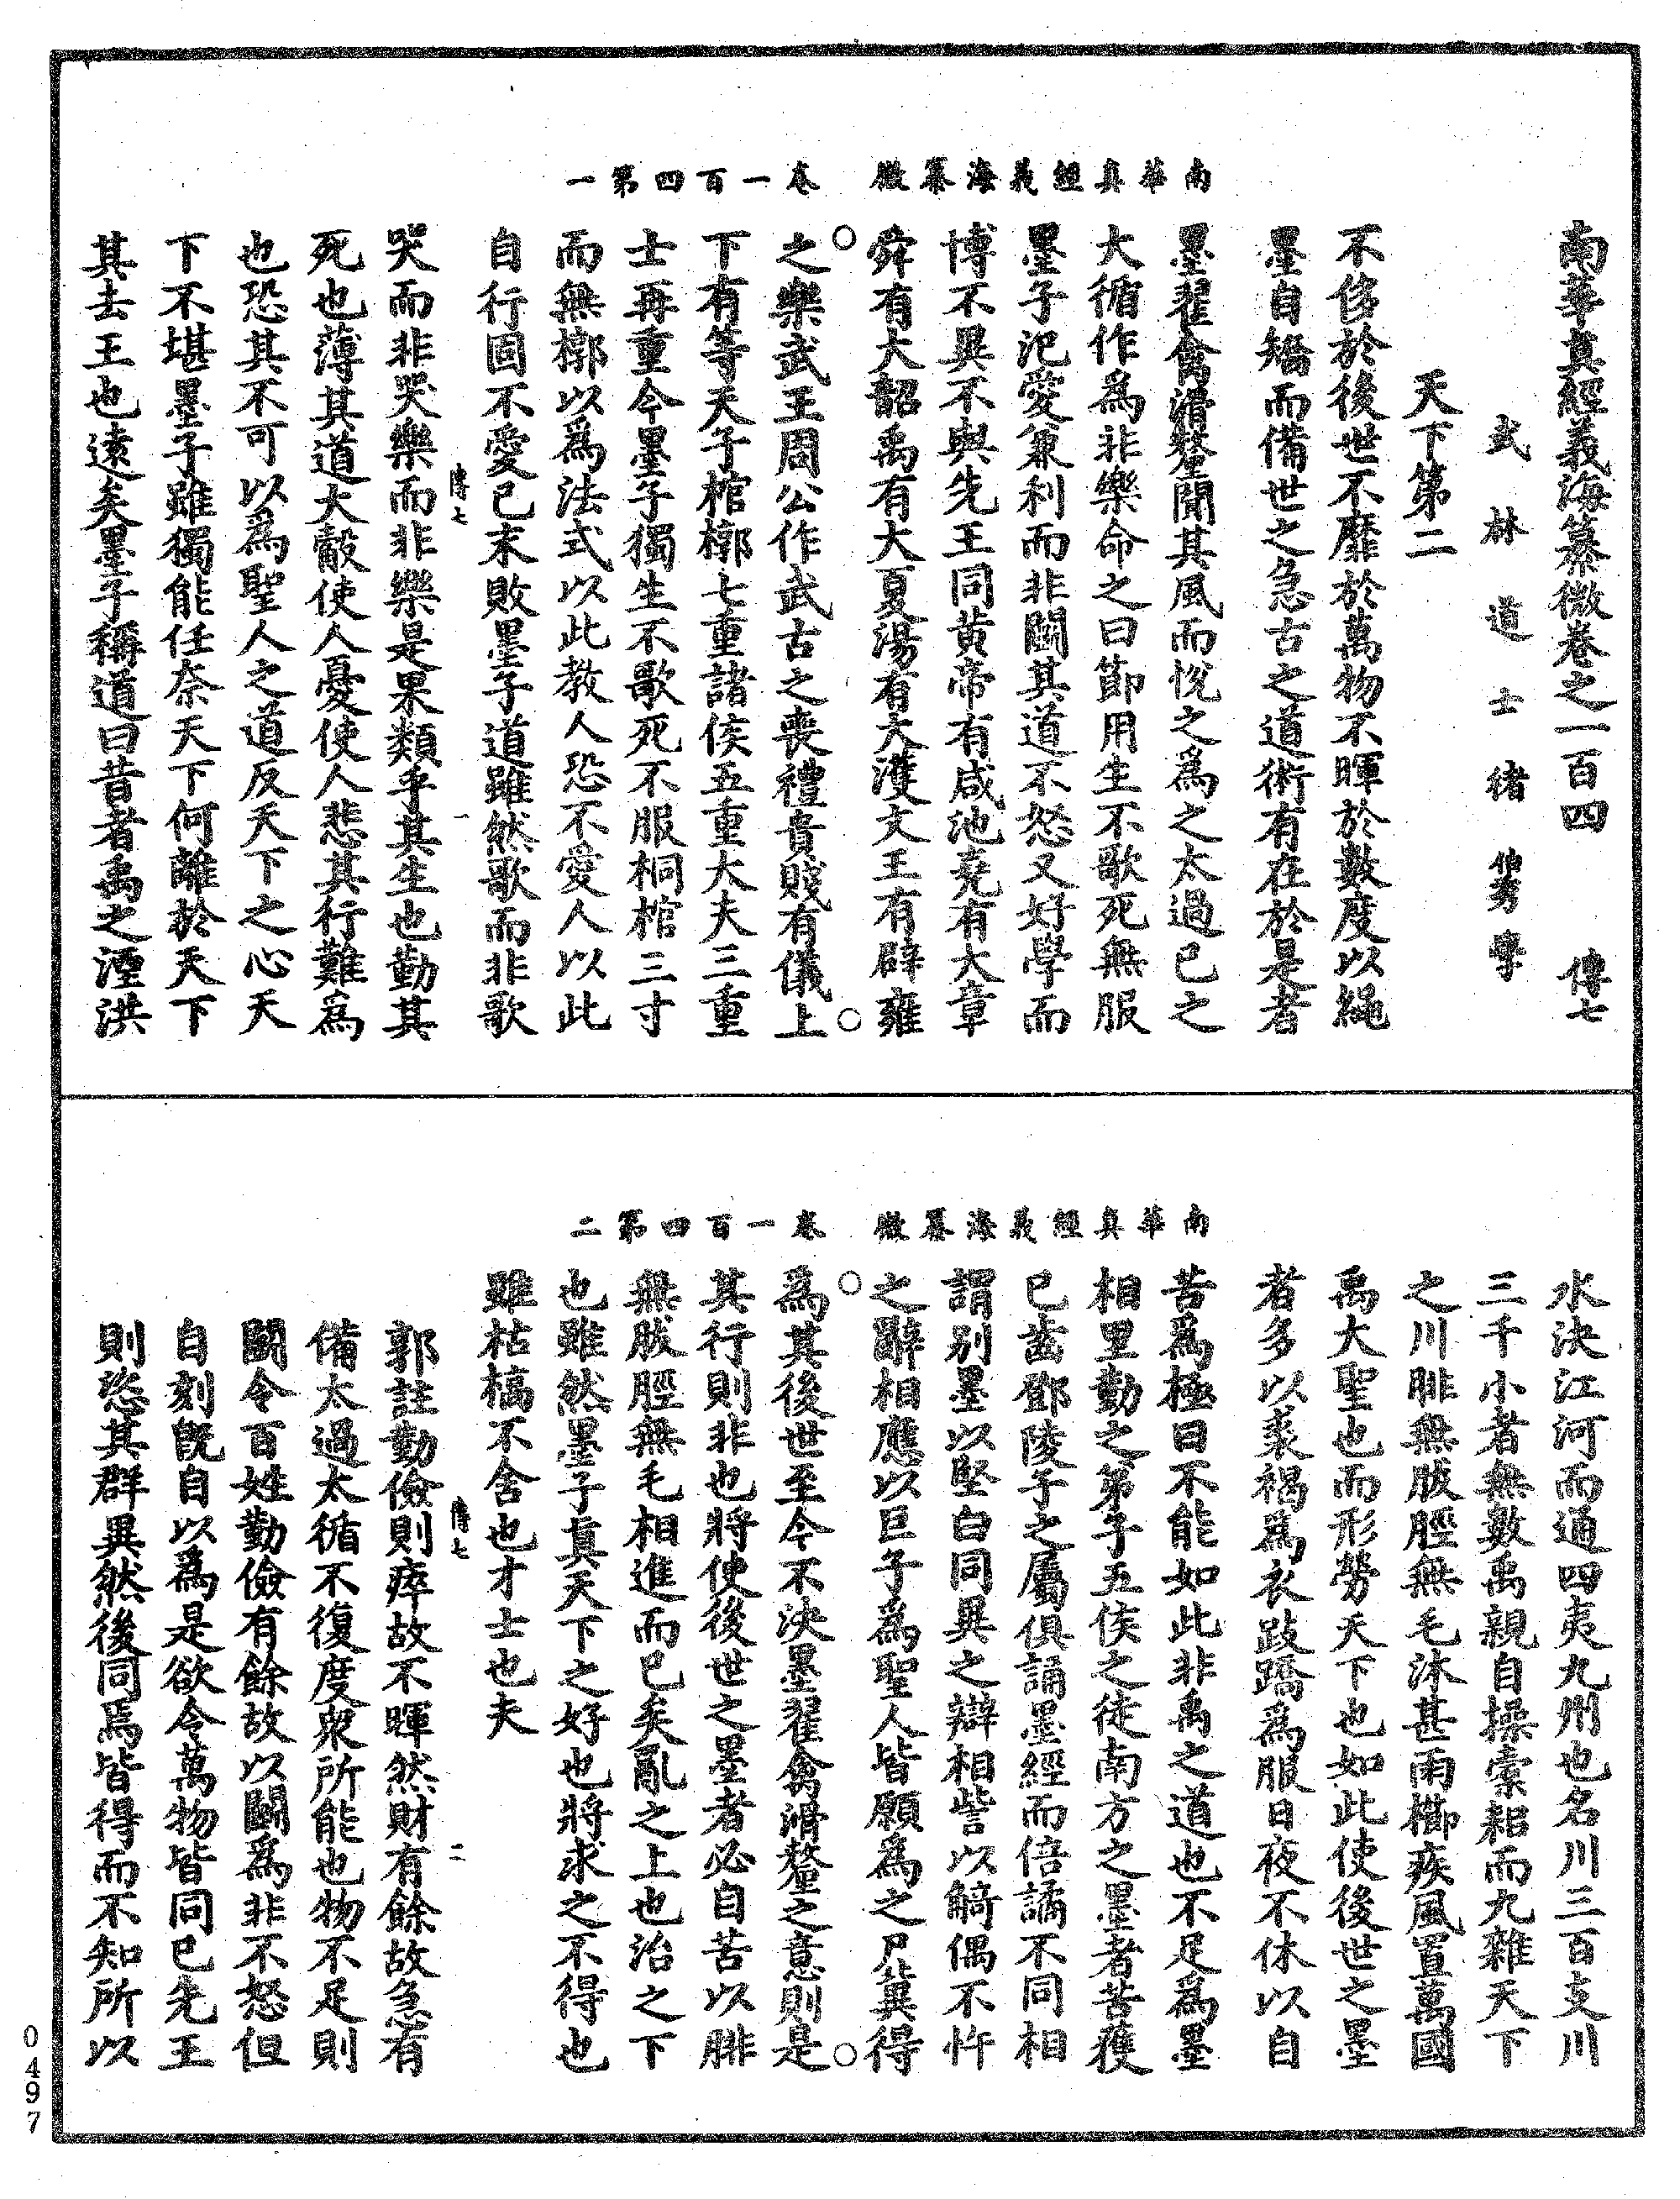 南華真經義海纂微 卷一百四第一
南華真經義海纂微卷之一百四 傳七
武林道士褚伯秀學
天下第二
不侈於後世不靡於萬物不暉於數度以繩
墨自矯而備世之急古之道術有在於是者
墨翟禽滑釐聞其風而悅之為之太過已之
大循作為非樂命之曰節用生不歌死無服
墨子氾愛兼利而非鬭其道不怒又好學而
博不異不與先王同黃帝有咸池堯有大章
舜有大韶禹有大夏湯有大濩文王有辟雍
之樂武王周公作武古之喪禮貴賤有儀上
下有等天子棺槨七重諸侯五重大夫三重
士再重今墨子獨生不歌死不服桐棺三寸
而無槨以為法式以此教人恐不愛人以此
自行固不愛己末敗墨子道雖然歌而非歌
傳七 一
哭而非哭樂而非樂是果類乎其生也勤其
死也薄其道大觳使人憂使人悲其行難為
也恐其不可以為聖人之道反天下之心天
下不堪墨子雖獨能任奈天下何離於天下
其去王也遠矣墨子稱道曰昔者禹之湮洪
南華真經義海纂微 卷一百四第二
水決江河而通四夷九州也名川三百支川
三千小者無數禹親自操橐耜而九雜天下
之川腓無胈脛無毛沐甚雨櫛疾風置萬國
禹大聖也而形勞天下也如此使後世之墨
者多以裘褐為衣跂蹻為服日夜不休以自
苦為極曰不能如此非禹之道也不足為墨
相里勤之弟子五侯之徒南方之墨者苦獲
已齒鄧陵子之屬俱誦墨經而倍譎不同相
謂別墨以堅白同異之辯相訾以觭偶不忤
之辭相應以巨子為聖人皆願為之尸冀得
為其後世至今不決墨翟禽滑釐之意則是
其行則非也將使後世之墨者必自苦以腓
無胈脛無毛相進而已矣亂之上也治之下
也雖然墨子真天下之好也將求之不得也
雖枯槁不舍也才士也夫
傳七 二
郭註勤儉則瘁故不暉然財有餘故急有
備太過太循不復度眾所能也物不足則
鬭令百姓勤儉有餘故以鬭為非不怒但
自刻既自以為是欲令萬物皆同己先王
則恣其群異然後同焉皆得而不知所以
0497